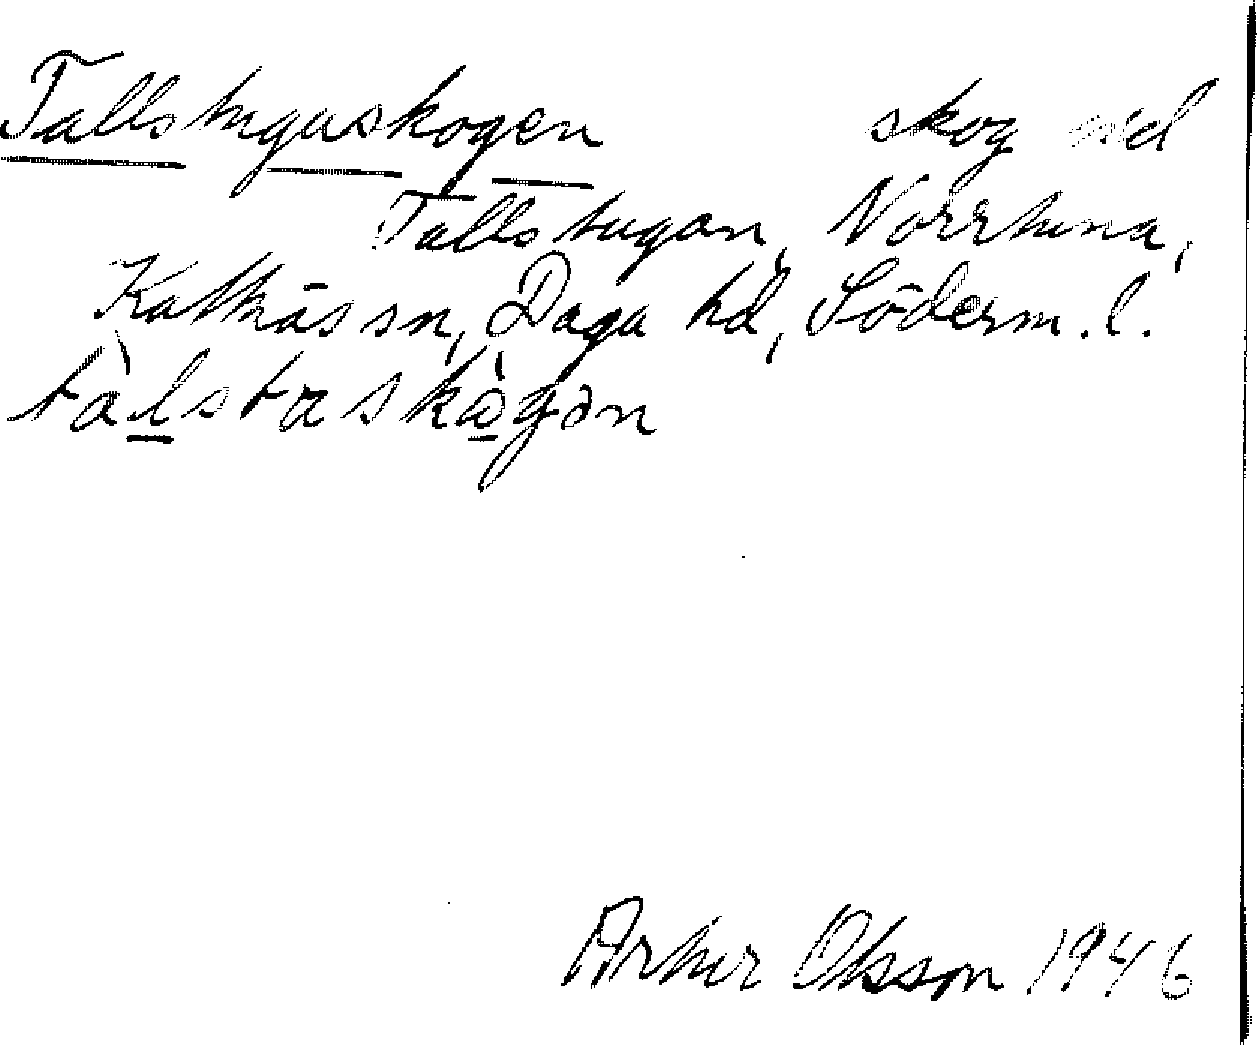 Tallstuguskogen skog vid
Tallstugan, Norrtuna,
Kattnäs sn, Daga hd, Söderm. l.
tàlstaskògən
Artur Olsson 1946